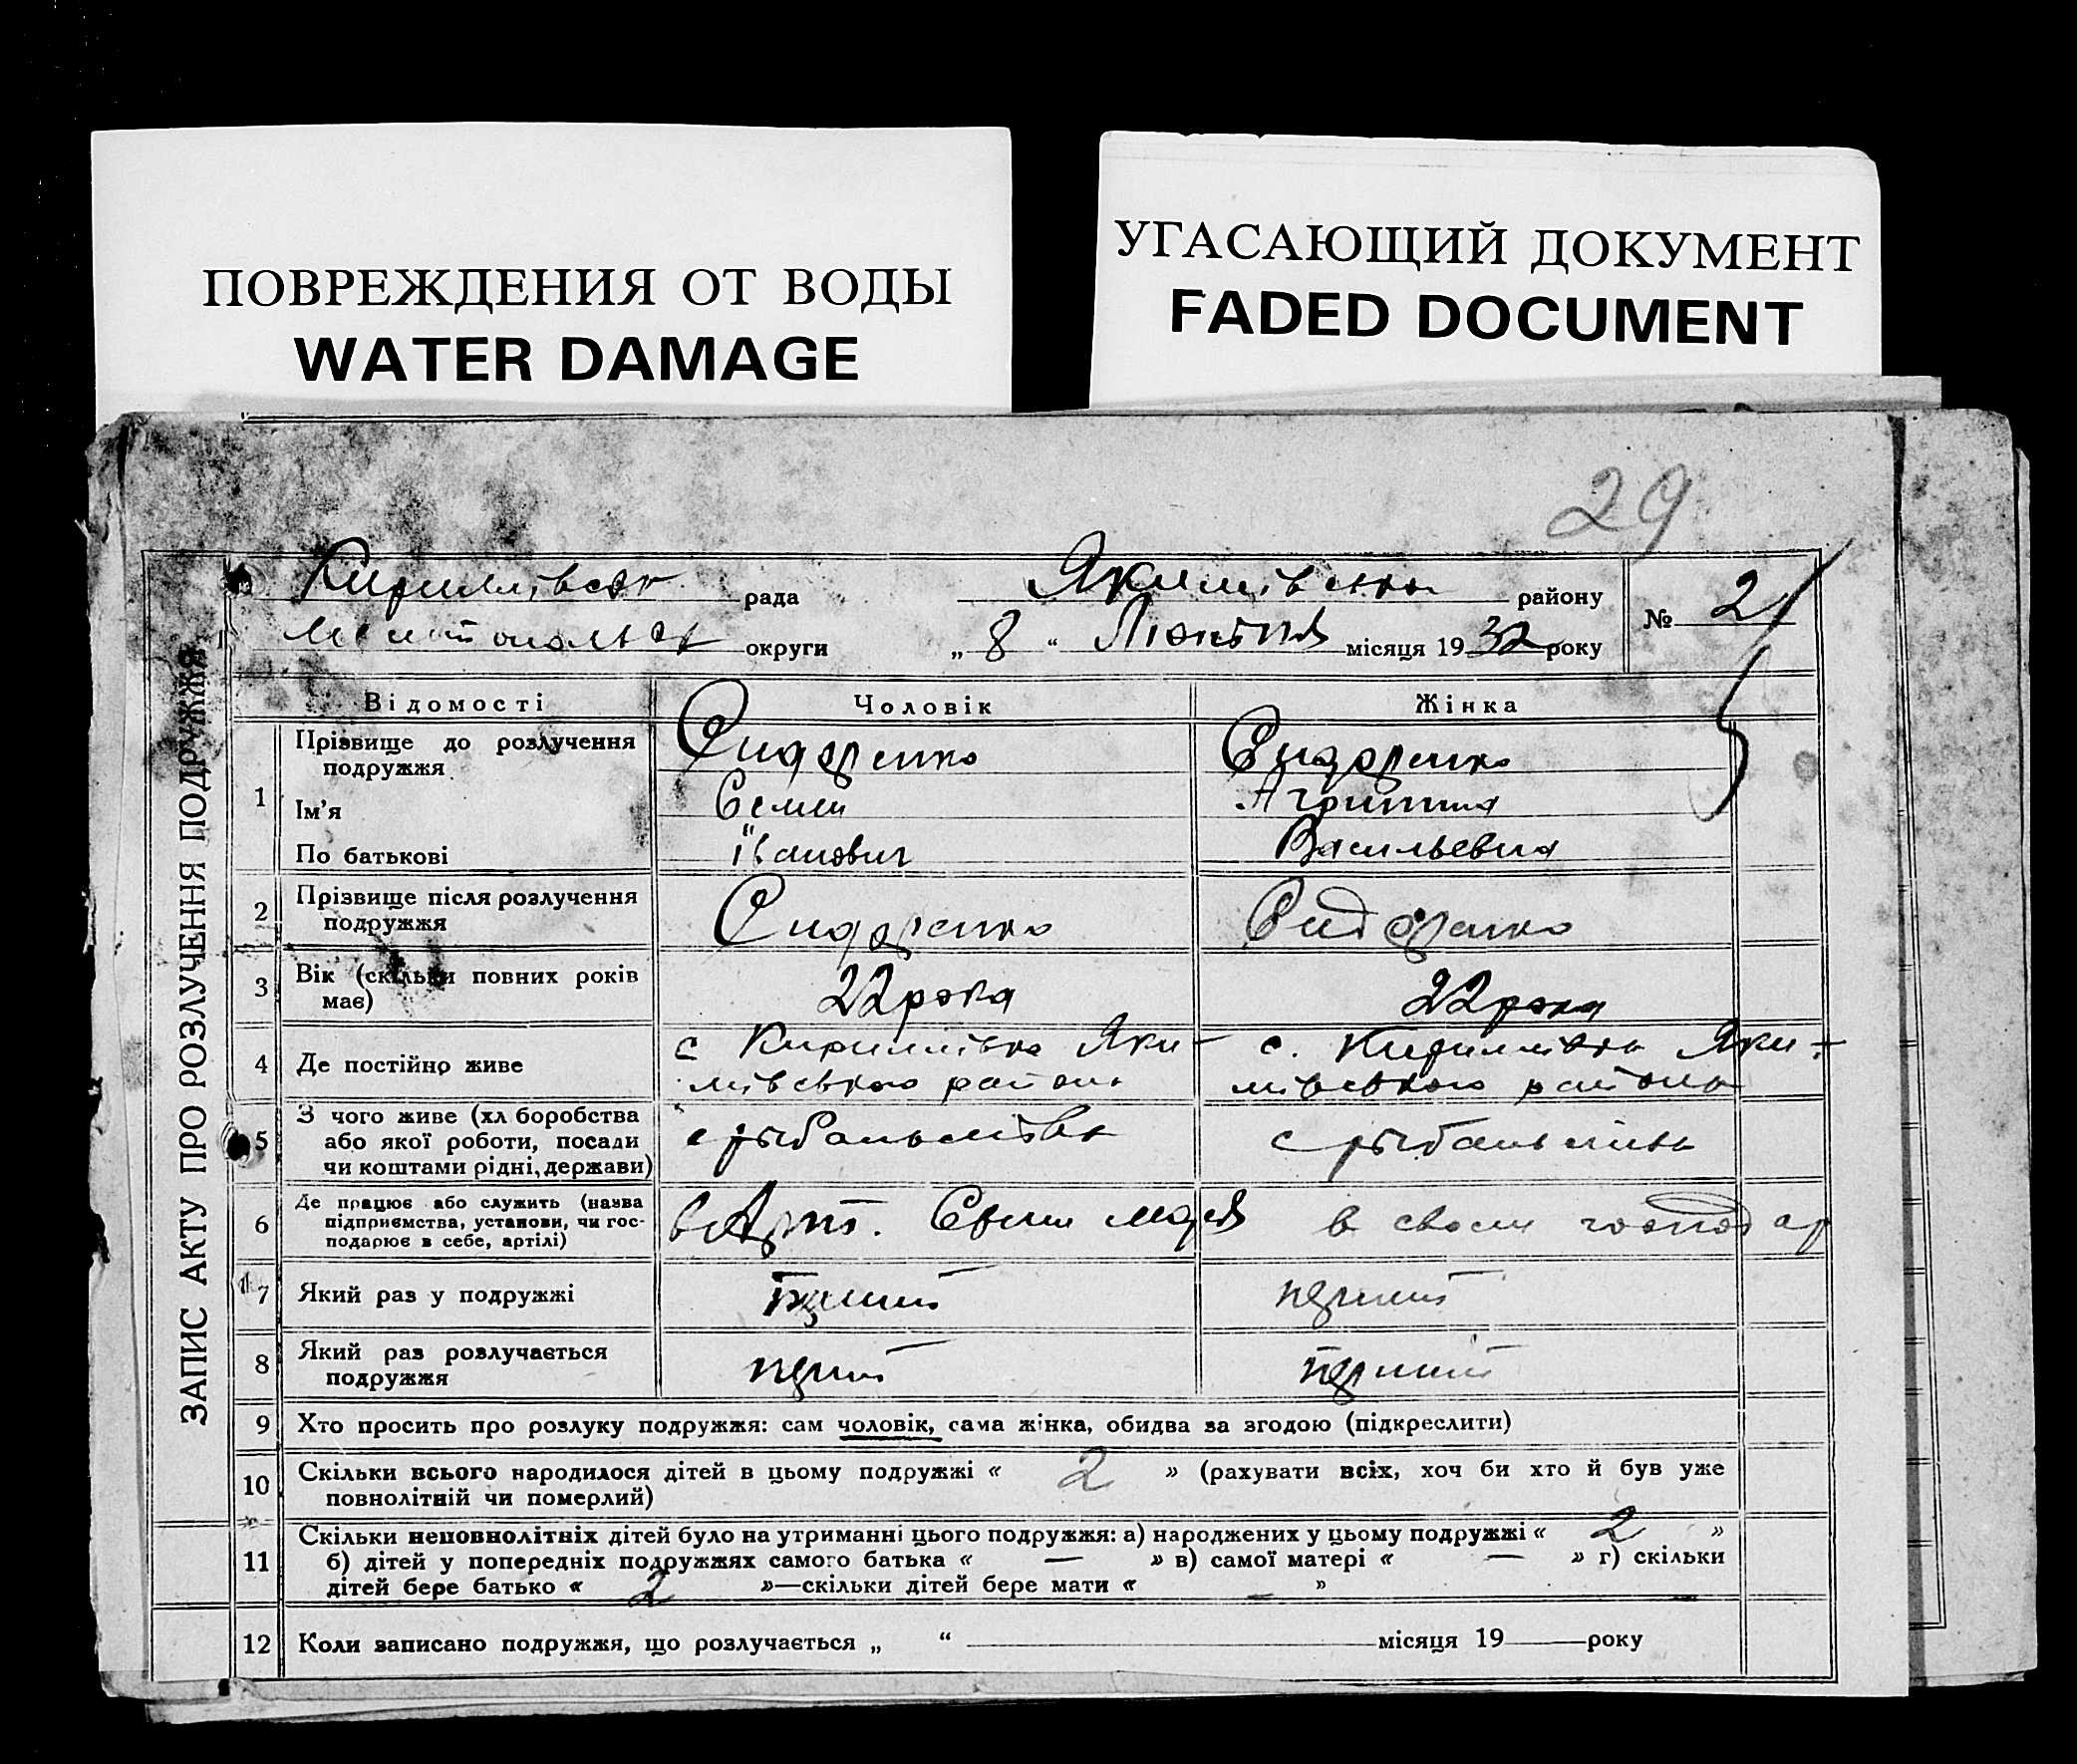 ПОВРЕЖДЕНИЯ ОТ ВОДЫ
WATER DAMAGE
УГАСАЮЩИЙ ДОКУМЕНТ
FADED DOCUMENT
29
ЗАПИС АКТУ ПРО РОЗЛУЧЕННЯ ПОДРУЖЖЯ
Кирилівськ рада Якимівськ району
округи „ 8 “ Лютня місяця 1932 року
№ 2
Відомості Чоловік Жінка
1 Прізвище до розлучення подружжя Сидоренко Сидоренко
Ім'я Семен
По батькові Іванович Васильевна
2 Прізвище після розлучення подружжя Сидоренко Сидоренко
3 Вік (скільки повних років має) 22 рока 22 рока
4 Де постійно живе с Кириллівка Яки- с. Кириллівка Яки-
мівського района мівського района
5 З чого живе (хл боробства
або якої роботи, посади
чи коштами рідні, держави)
с рыбальства с рыбальства
6 Де працює або служить (назва
підприємства, установи, чи гос-
подарює в себе, артілі)
в Арт. в своем господар
7 Який раз у подружжі перший
8 Який раз розлучається подружжя перший
9 Хто просить про розлуку подружжя: сам чоловік, сама жінка, обидва за згодою (підкреслити)
10 Скільки всього народилося дітей в цьому подружжі « 2 » (рахувати всіх, хоч би хто й був уже
повнолітній чи померлий)
11 Скільки неповнолітніх дітей було на утриманні цього подружжя: а) народжених у цьому подружжі « 2 »
б) дітей у попередніх подружжях самого батька « — » в) самої матері « — » г) скільки
дітей бере батько « 2 »—скільки дітей бере мати « — »
12 Коли записано подружжя, що розлучається „ “ місяця 19 року